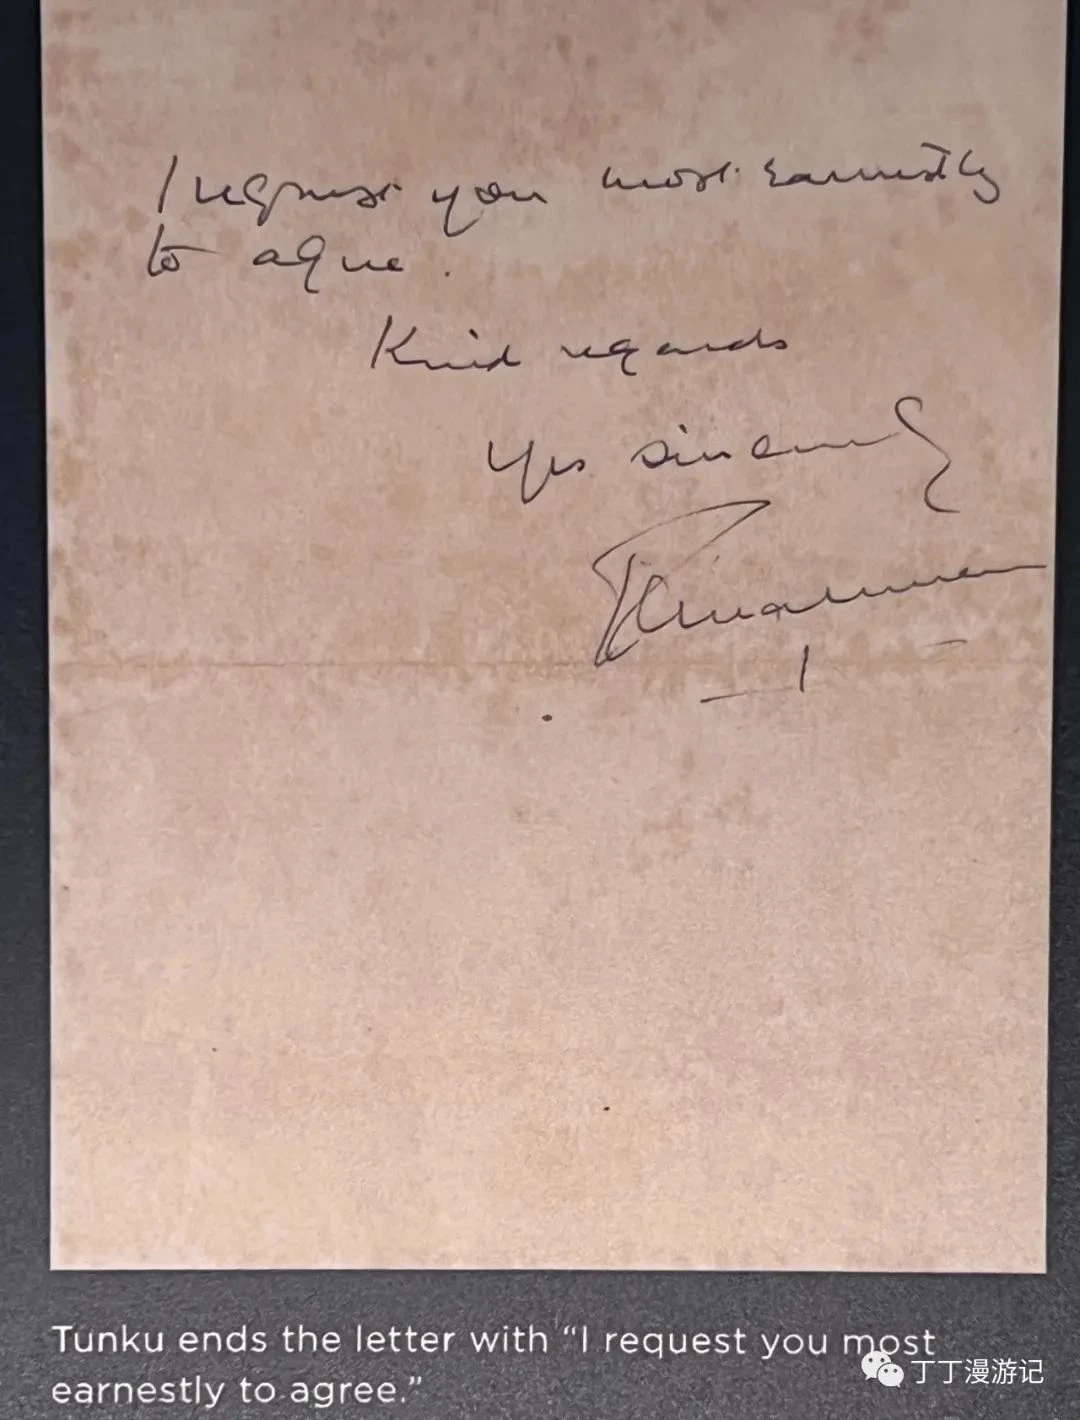 I request you most earnestly
to agree.
Kind regards
Yrs sincerely
Tunku ends the letter with “I request you most
earnestly to agree.”
丁丁漫游记